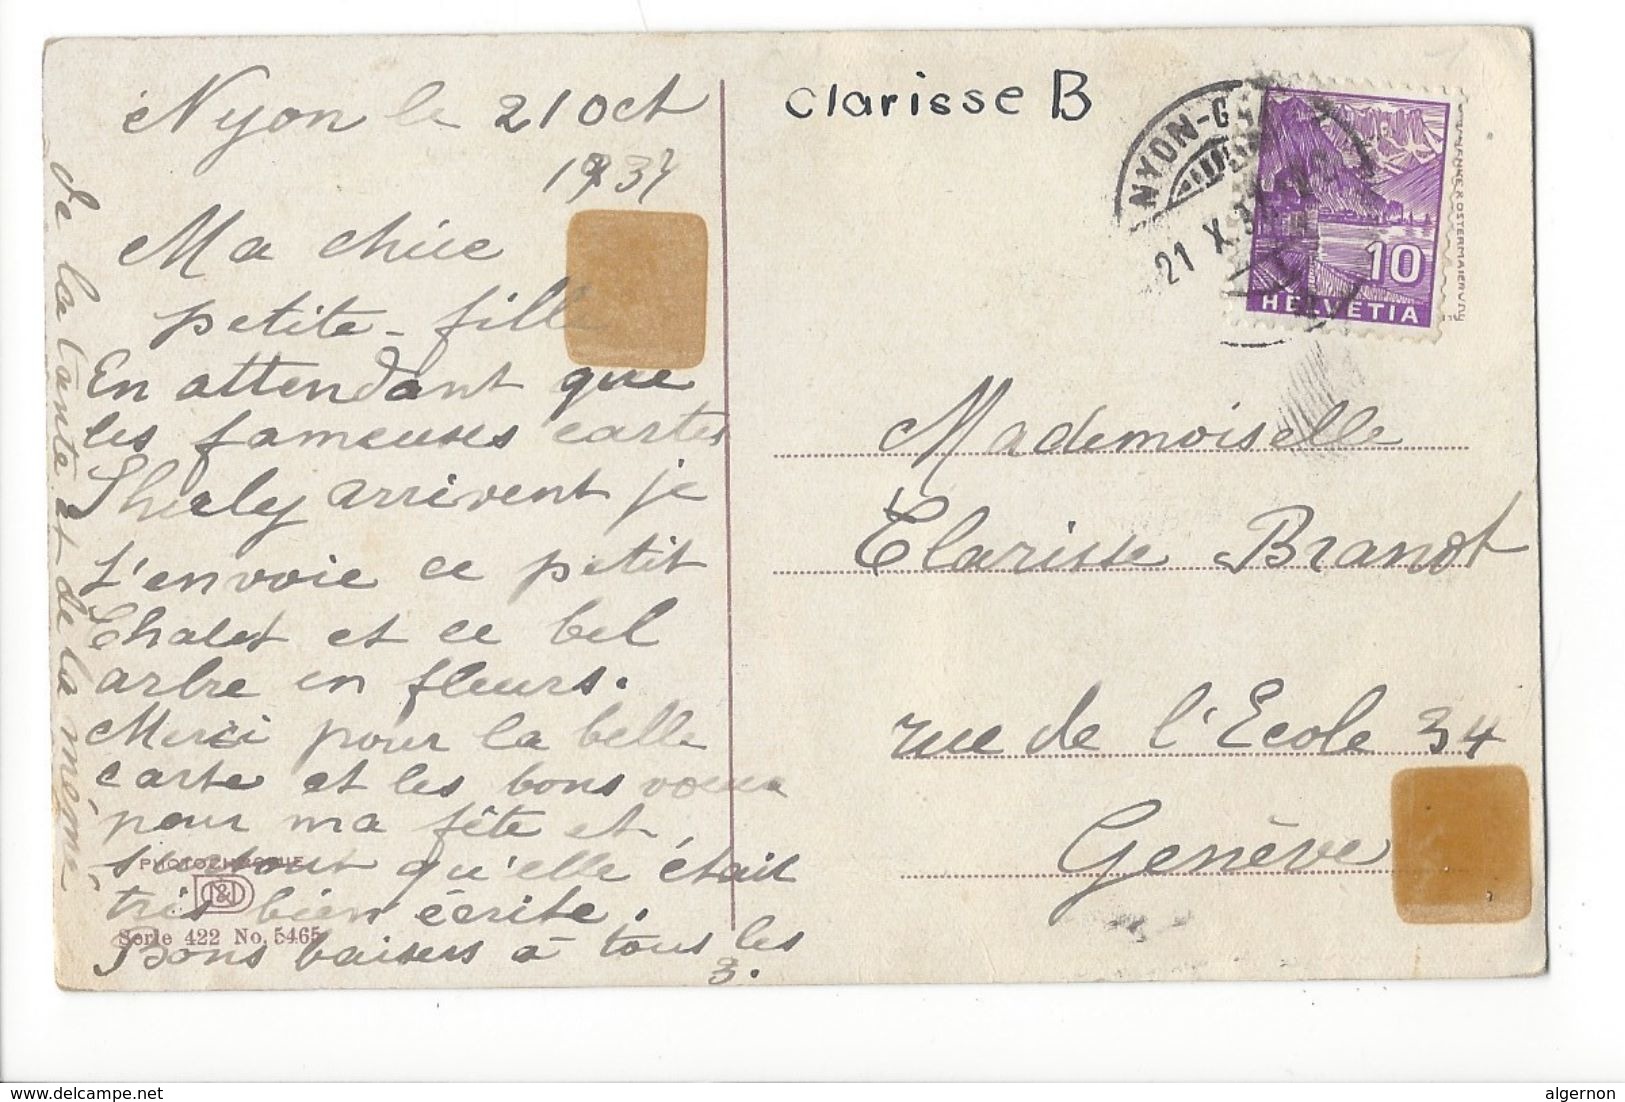 Nyon le 21 Oct
1937
Ma chère
petite-fille
En attendant que
les fameuses cartes
Shirly arrivent je
t'envoie ce petit
Chalet et ce bel
arbre en fleurs.
Merci pour la belle
carte et les bons voeux
pour ma fête et
surtout qu'elle était
très bien écrite.
Bons baisers à tous les
3.
de la tante et de la mémé
PHOTOCHROMIE
Serie 422 No. 5465
Clarisse B
NYON
21 X 37
10
HELVETIA
Mademoiselle
Clarisse Brandt
rue de l'Ecole 34
Genève
delcampe.net
algernon